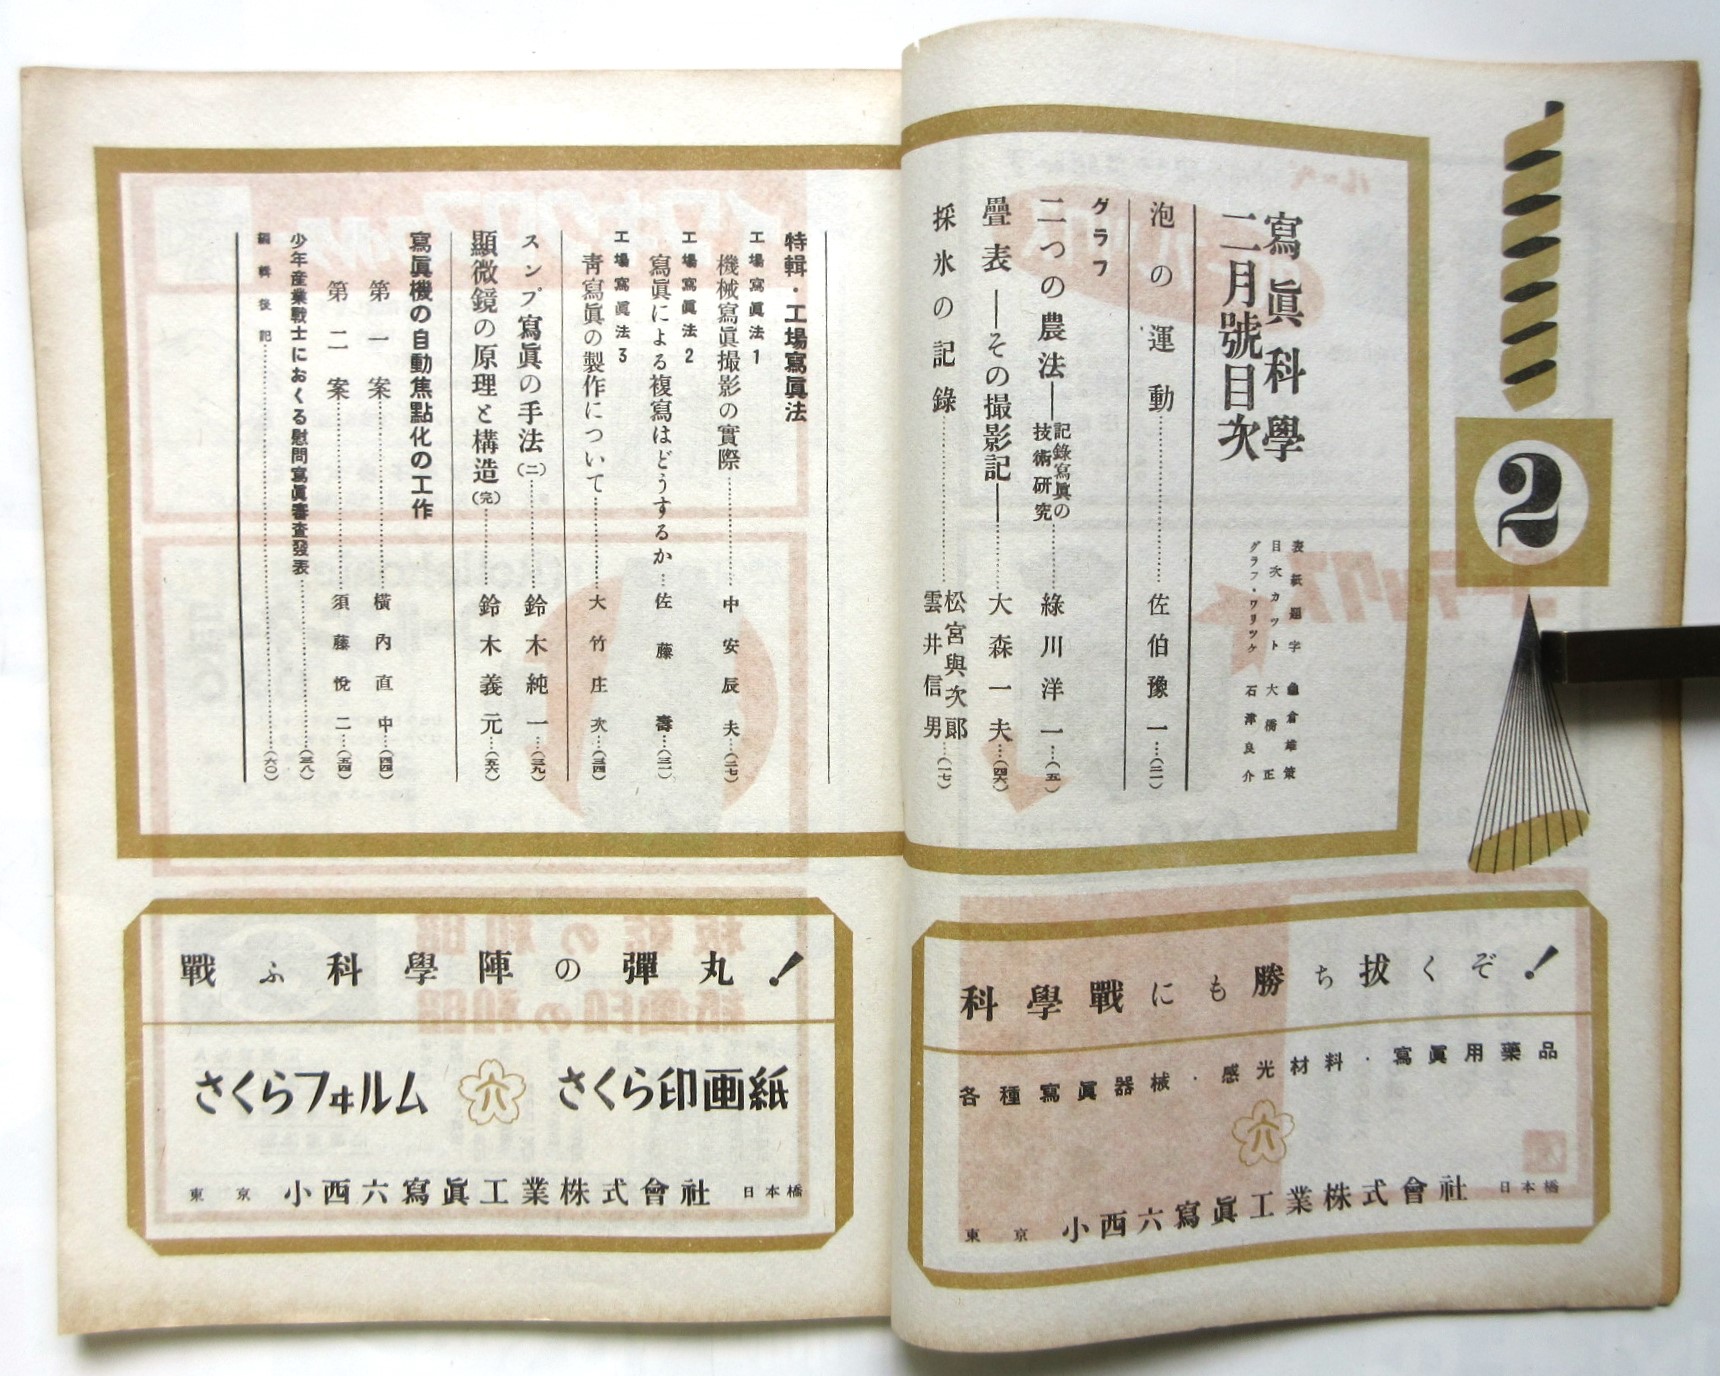 寫眞科學
二月號目次
表紙題字 龜倉雄策
目次カット 大橋正
グラフ・ワリツケ 石津良介
2
泡の運動…………佐伯豫一…(二一)
グラフ
二つの農法――記錄寫眞の技術硏究…綠川洋一…(五一)
疊表――その撮影記――大森一夫…(四六)
採氷の記錄…………松宮與次郎 雲井信男…(一七)
特輯・工場寫眞法
工場寫眞法1
機械寫眞撮影の實際…………中安辰夫…(二七)
工場寫眞法2
寫眞による複寫はどうするか…佐藤 壽…(三一)
工場寫眞法3
靑寫眞の製作について…………大竹庄次…(三四)
スンプ寫眞の手法(二)…………鈴木純一…(三九)
顯微鏡の原理と構造(完)…………鈴木義元…(五六)
寫眞機の自動焦點化の工作
第一案…………橫內直中…(四四)
第二案…………須藤悅二…(五四)
少年産業戰士におくる慰問寫眞審査發表…………(三八)
編輯後記…………(六〇)
科學戰にも勝ち拔くぞ!
各種寫眞器械・感光材料・寫眞用藥品
六
東京 小西六寫眞工業株式會社 日本橋
戰ふ科學陣の彈丸!
さくらフヰルム 六 さくら印画紙
東京 小西六寫眞工業株式會社 日本橋